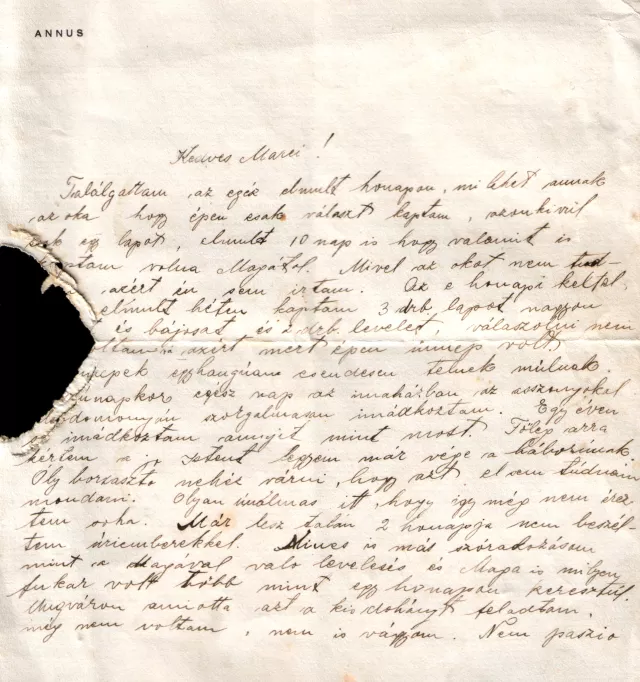 ANNUS
Kedves Marci!
Találgattam az egész elmult honapon, mi lehet annak
az oka hogy épen csak választ kaptam, azonkivül
csak egy lapot, elmult 10 nap is hogy valamit is
kaptam volna Magától. Mivel az okot nem tud-
azért én sem irtam. Az e honapi keltel.
elmult héten kaptam 3 drb. lapot nagyon
t és bájosat és 2 drb. levelet, válaszolni nem
azért mert épen ünnep volt.
ünnepek egyhanguan csendesen telnek mulnak.
napkor egész nap az imaházban az asszonyokal
szorgalmasan imádkoztam. Egy éven
imádkoztam annyit mint most. Főleg arra
kértem a jó Istent legyen már vége a háborúnak.
Oly borzasztó nehéz várni, hogy azt el sem tudnám
mondani. Olyan unalmas itt, hogy igy még nem érez-
tem soha. Már lesz talán 2 honapja nem beszél-
tem úriemberekkel. Nincs is más szórakozásom
mint a Magával való levelezés és Maga is milyen
fukar volt több mint egy honapon keresztül.
Ungváron amiotta azt a kis dohányt feladtam,
még nem voltam, nem is vágyom. Nem paszio